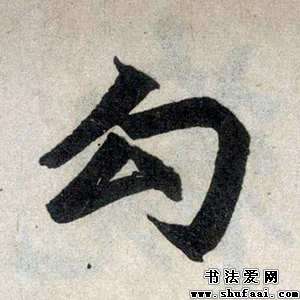 勾
书法爱网
www.shufaai.com